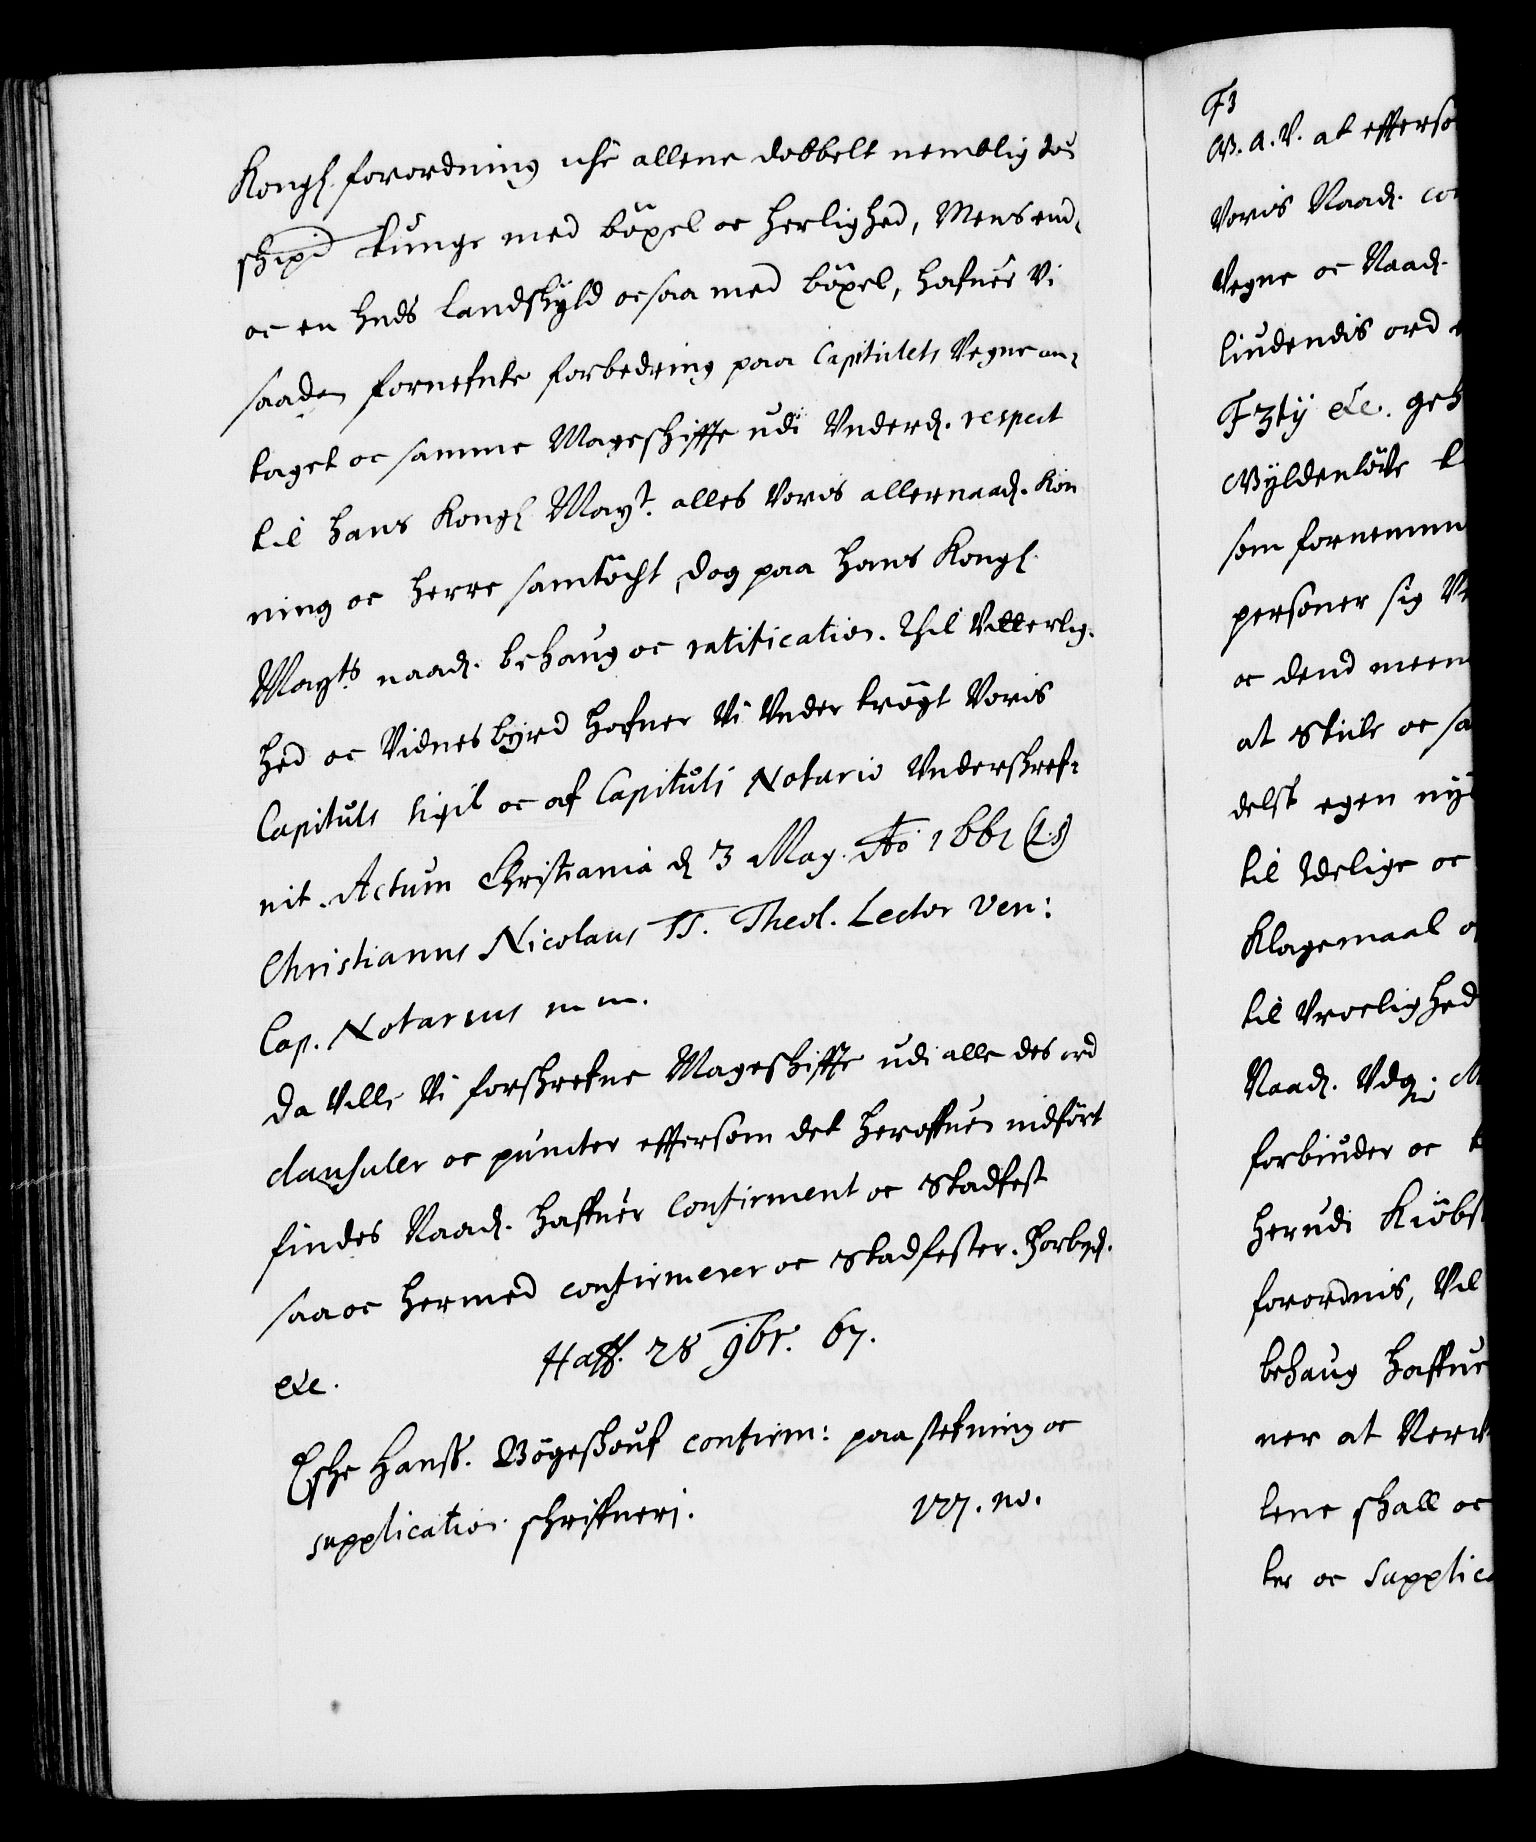 Kongl. forordning iche allene dobbelt nemblig tou
schipd tunge med böxel oc herlighed, Mens end,
oc en huds landskyld ocsaa med böxel, hafuer Vi
saaden fornefnte forbedring paa Capitulets Vegne an-
taget oc samme Mageschiffte udi Underd. respect
til hans Kongl Mayt. alles Voris allernaad. Kon
ning oc herre samtöcht, dog paa hans Kongl.
Mayts. naad. behaug oc ratification. Thil Vitterlig-
hed oc Vidnesbyrd hafuer Vi Under trögt Voris
Capituls sigil oc af Capituli Notario Underskref-
uit. Actum Christiania d 3 May. Ao 1661 (L.S)
Christianus Nicolaus SS. Theol. Lector Ven:
Cap. Notarius m m.
Da Ville Vi forschrefne Mageschiffte udi alle des ord
clausuler oc puncter effersom det herofuen indfört
findes Naad. haffuer Confirmeret oc Stadfest
saa oc hermed confirmerer oc Stadfester. Forbyd.
etc. Haff. 28 9br. 67.
Esche Hanss. Bögeskouf confirm: paa stefning oc
supplication schriffueri. vvj. no.
F3
G. A. V. at efferso
Voris Naad. con
Vegne oc Naad.
liudendis ord
F3ty etc. geh
Gyldenlöve
som fornemm
personer sig
oc dend meen
at Stile oc sa
delst egen nÿ
til Idelige oc
Klagemaal
til Uroelighed
Naad. Vdg
forbiuder oc
herudi Kiöbst
forordnis, Vil
behaug haffue
ner at Verck
lene skall oc
ter oc supplica